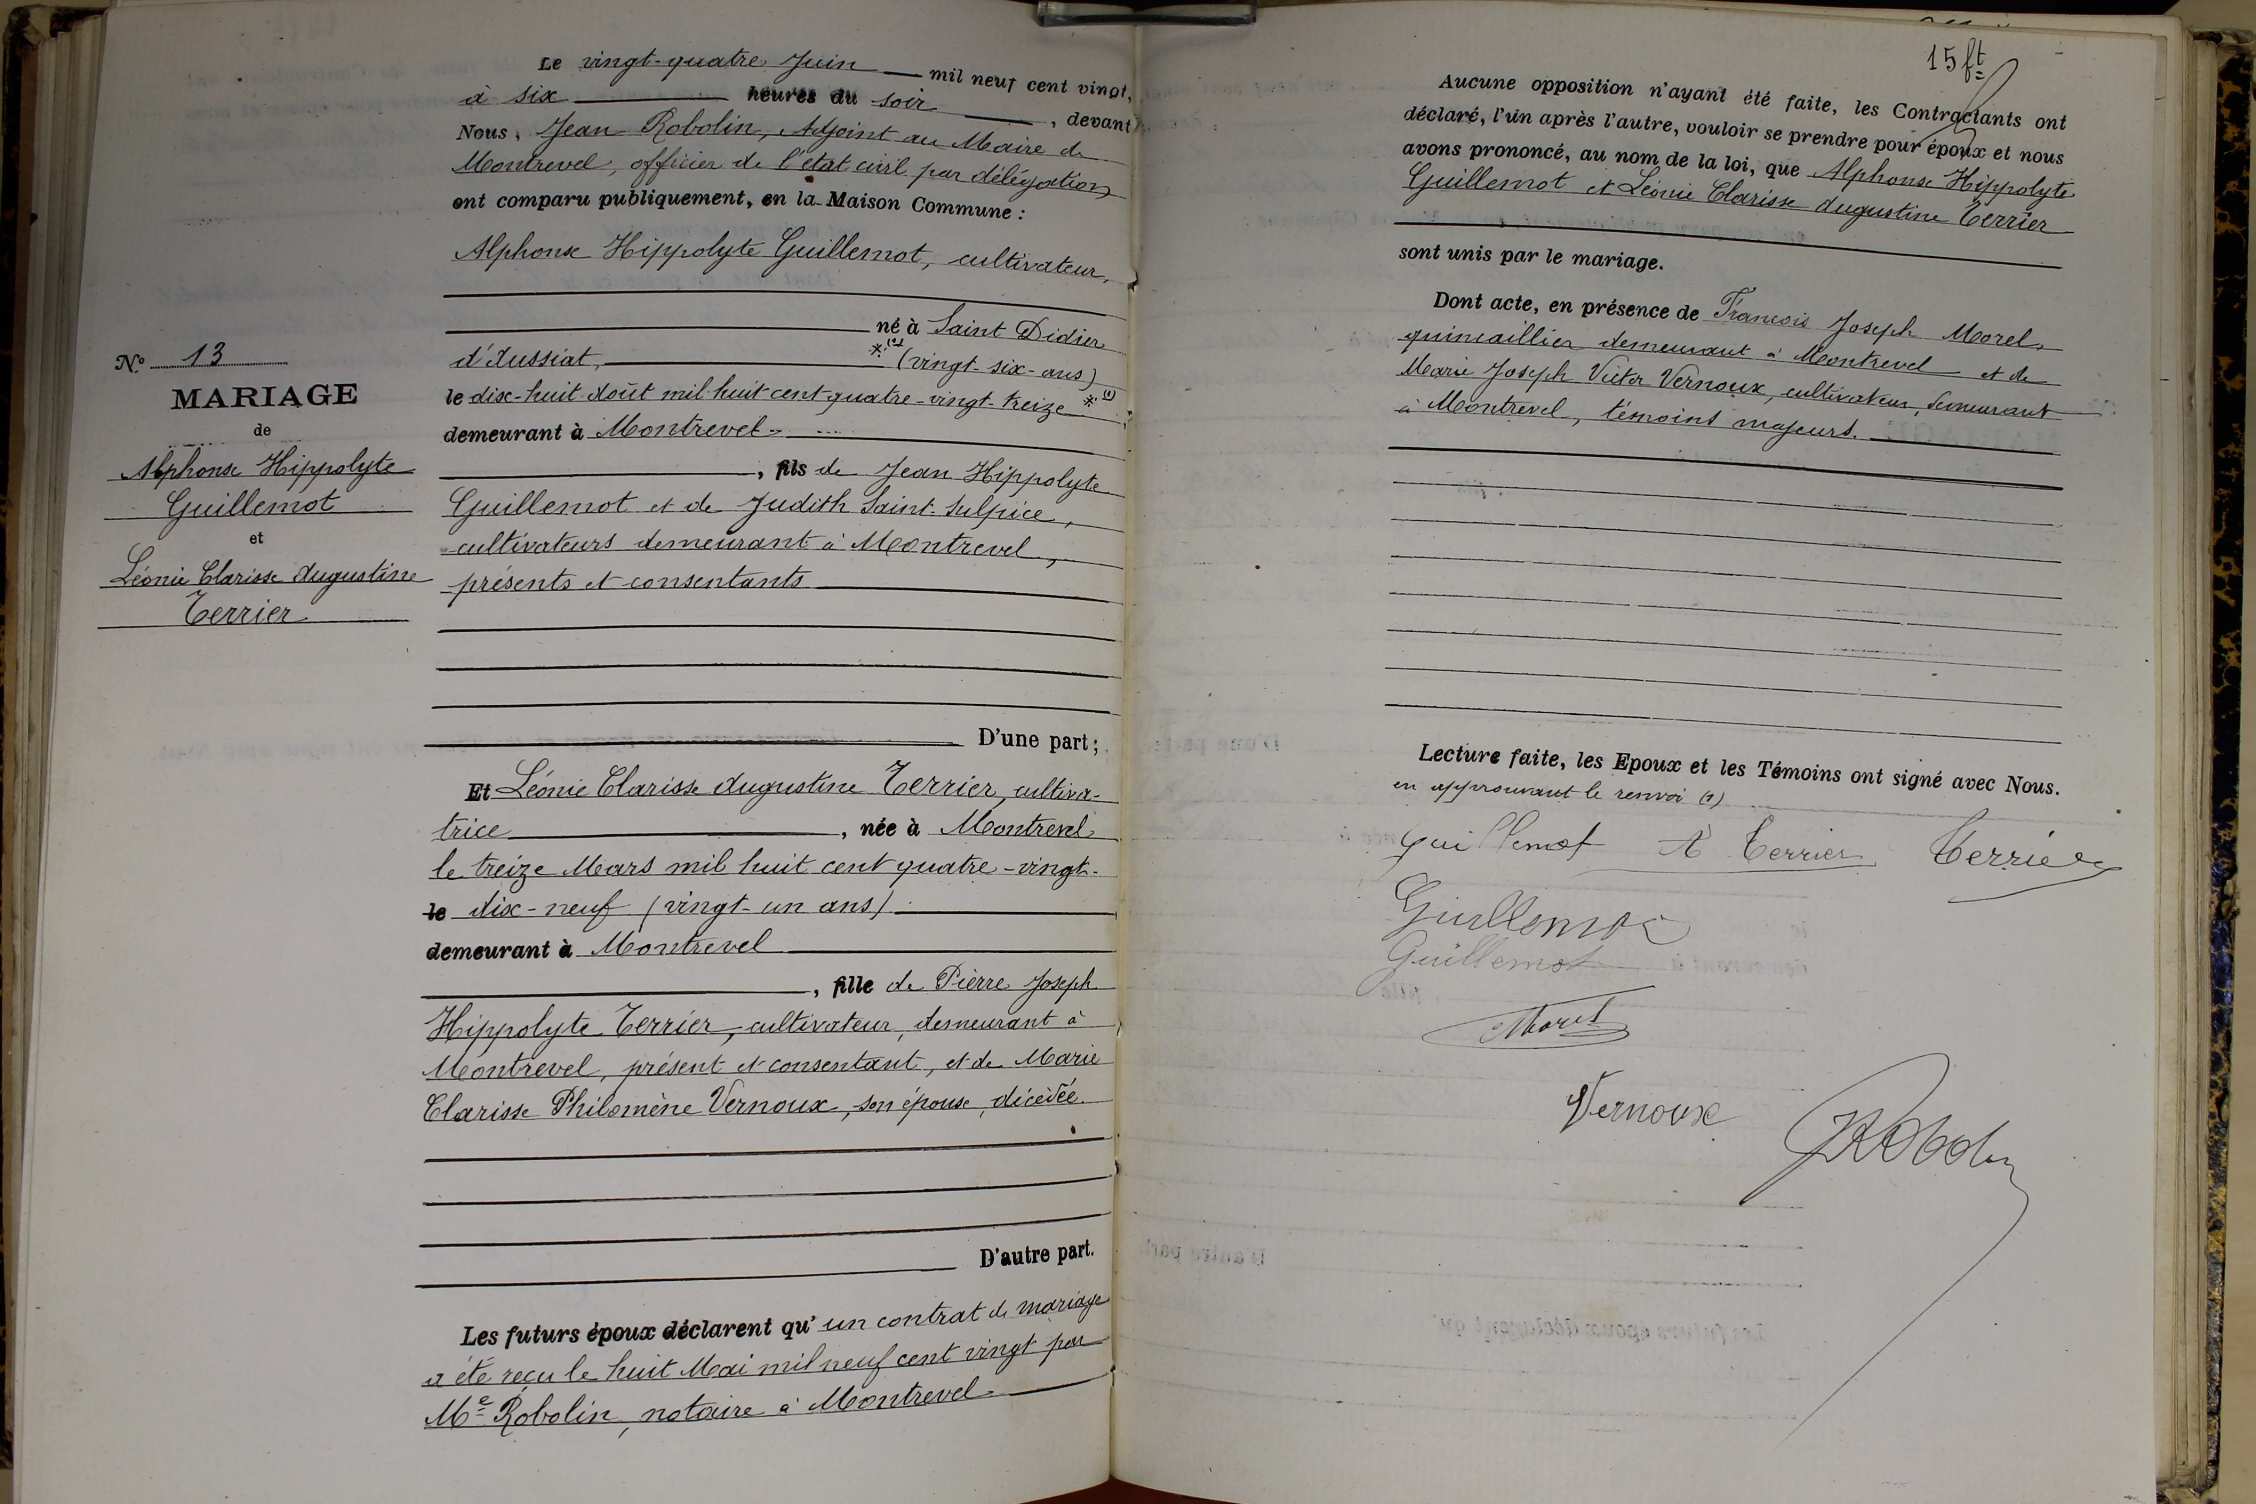 N° 13
MARIAGE
de
Alphonse Hippolyte
Guillemot
et
Léonie Clarisse Augustine
Terrier
Le vingt-quatre Juin mil neuf cent vingt,
à six heures du soir, devant
Nous, Jean Robolin, Adjoint au Maire de
Montrevel, officier de l'état civil par délégation,
ont comparu publiquement, en la Maison Commune :
Alphonse Hippolyte Guillemot, cultivateur,
né à Saint Didier
d'Aussiat, * (1) (vingt-six-ans)
le dix-huit Août mil huit cent quatre-vingt-treize * (1)
demeurant à Montrevel
, fils de Jean Hippolyte
Guillemot et de Judith Saint-Sulpice,
cultivateurs demeurant à Montrevel,
présents et consentants
D'une part ;
Et Léonie Clarisse Augustine Terrier, cultiva-
trice, née à Montrevel
le treize Mars mil huit cent quatre-vingt-
le dix-neuf (vingt-un ans)
demeurant à Montrevel
, fille de Pierre Joseph
Hippolyte Terrier, cultivateur, demeurant à
Montrevel, présent et consentant, et de Marie
Clarisse Philomène Vernoux, son épouse, décédée.
D'autre part.
Les futurs époux déclarent qu'un contrat de mariage
a été reçu le huit Mai mil neuf cent vingt par
Me Robolin, notaire à Montrevel
15 ft
Aucune opposition n'ayant été faite, les Contractants ont
déclaré, l'un après l'autre, vouloir se prendre pour époux et nous
avons prononcé, au nom de la loi, que Alphonse Hippolyte
Guillemot et Léonie Clarisse Augustine Terrier
sont unis par le mariage.
Dont acte, en présence de Francois Joseph Morel,
quincaillier demeurant à Montrevel et de
Marie Joseph Victor Vernoux, cultivateur, demeurant
à Montrevel, témoins majeurs.
Lecture faite, les Epoux et les Témoins ont signé avec Nous.
en approuvant le renvoi (1)
Guillemot A Terrier Terrier
Guillemot
Guillemot
Morel
Vernoux
JRobolin